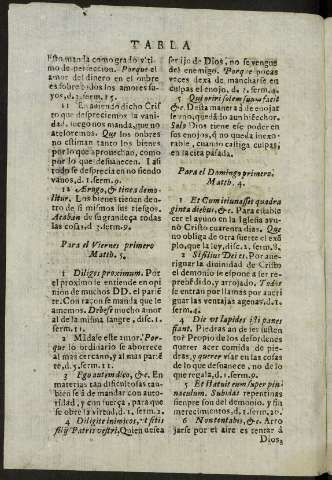 TABLA
Esto manda como grado vlti-
mo de perfeccion. Porque el
amor del dinero en el onbre
es sobre todos los amores su-
yos, d.2.serm.15.
11 En auiendo dicho Cris
to que despreciemos la vani-
dad, luego nos manda, que no
atesoremos. Que los onbres
no estiman tanto los bienes
por lo que aprouechan, como
por lo que desuanecen. I asi
todo se desprecia en no siendo
vanos, d.1.serm.9.
12 Ærugo, & tinea demo-
litur. Los bienes tienen den-
tro de si mismos sus riesgos.
Acaban de su grandeça todas
las cosas, d.3.serm.9.
Para el Viernes primero
Matth. 5.
1 Diliges proximum. Por
el proximo entiende en opi
nion de muchos DD. el parié
te. Con raçon se manda que le
amemos. Debese mucho amor
al de la misma sangre, disc.1.
serm.11.
2 Mãdase este amor. Por-
que lo ordinario se aborrece
al mas cercano, y al mas parié
te, d.5.serm.11.
3 Ego autem dico, &c. En
materias tan dificultosas tan-
bien se á de mandar con auto-
ridad, y con fuerça, para que
se obre la virtud, d.1.serm.2.
4 Diligite inimicos, vt sitis
filij Patris vestri, Quien desea
ser ijo de Dios, no se vengue
del enemigo. Porque pocas
veces dexa de mancharse en
culpas el enojo, d.1.serm.4.
5 Qui oriri solem suum facit
&c. Desta manera á de enojar
se vno, quedádo aun bienechor.
Solo Dios tiene ese poder en
sus enojos, que no queda inexo-
rable, cuando castiga culpas,
en la cita pasada.
Para el Domingo primero.
Matth. 4.
1 Et Cum ieiunasset quadra
ginta diebus, &c. Para estable
cer el ayuno en la Iglesia ayu-
nò Cristo cuarenta dias. Que
no obliga de otra suerte el exē
plo, que la ley, disc.2.serm.8.
2 Si filius Dei es. Por aue-
riguar la diuinidad de Cristo
el demonio se espone a ser re-
prehendido, y arrojado.
se entran por llamas por aueri
guar las ventajas agenas, d.1.
serm.4.
4 Dic vt lapides isti panes
fiant. Piedras an de ser susten
to? Propio de los defordenes
querer acer comida de pie-
dras, y querer viar en las cosas
de lo que desuanece, no de lo
que regala, disc.1.serm.9.
5 Et statuit eum super pin-
naculum. Subidas repentinas
sienpre son del demonio, y sin
merecimientos, d.1.serm.20.
6 Non tentabis, &c. Arro
jarse por el aire es tentar á
Dios;